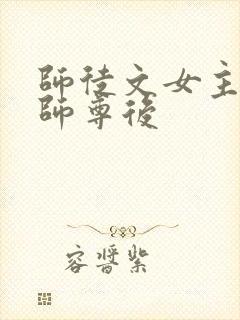 師徒文女主
師尊後
容醬紫